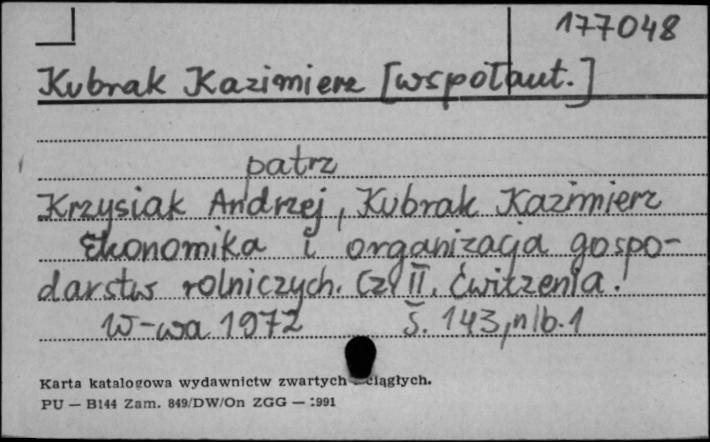 177048
Kubrak Kazimierz [współaut.]
patrz
Krzysiak Andrzej, Kubrak Kazimierz
Ekonomika i organizacja gospo-
darstw rolniczych. Cz. II. Ćwiczenia.
W-wa 1972 s. 143, nlb. 1
Karta katalogowa wydawnictw zwartych ciągłych.
PU — B144 Zam. 849/DW/On ZGG — 1991